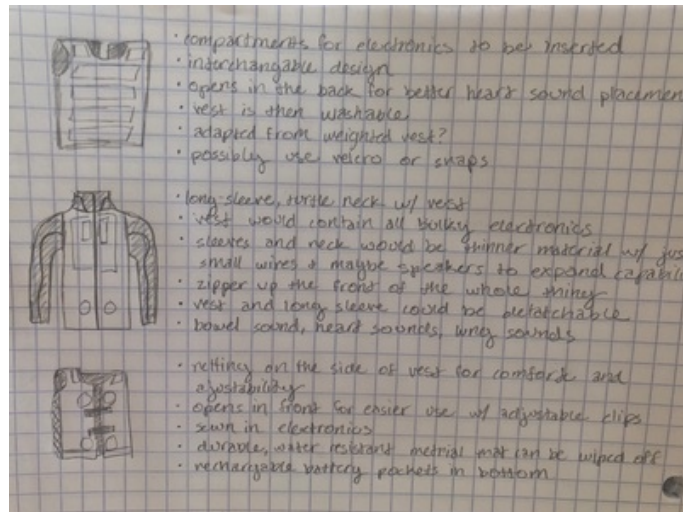 · compartments for electronics to be inserted
· interchangable design
· opens in the back for better heart sound placemen
· vest is then washable
· adapted from weighted vest?
· possibly use velcro or snaps
· long sleeve, turtle neck w/ vest
· vest would contain all bulky electronics
· sleeves and neck would be thinner material w/ jus
small wires + maybe speakers to expand capabili
· zipper up the front of the whole thing
· vest and long sleeve could be detatchable
· bowel sound, heart sounds, lung sounds
· netting on the side of vest for comfort and
ajustability
· opens in front for easier use w/ adjustable clips
· sewn in electronics
· durable, water resistant metrial that can be wiped off
· rechargable battery pockets in bottom